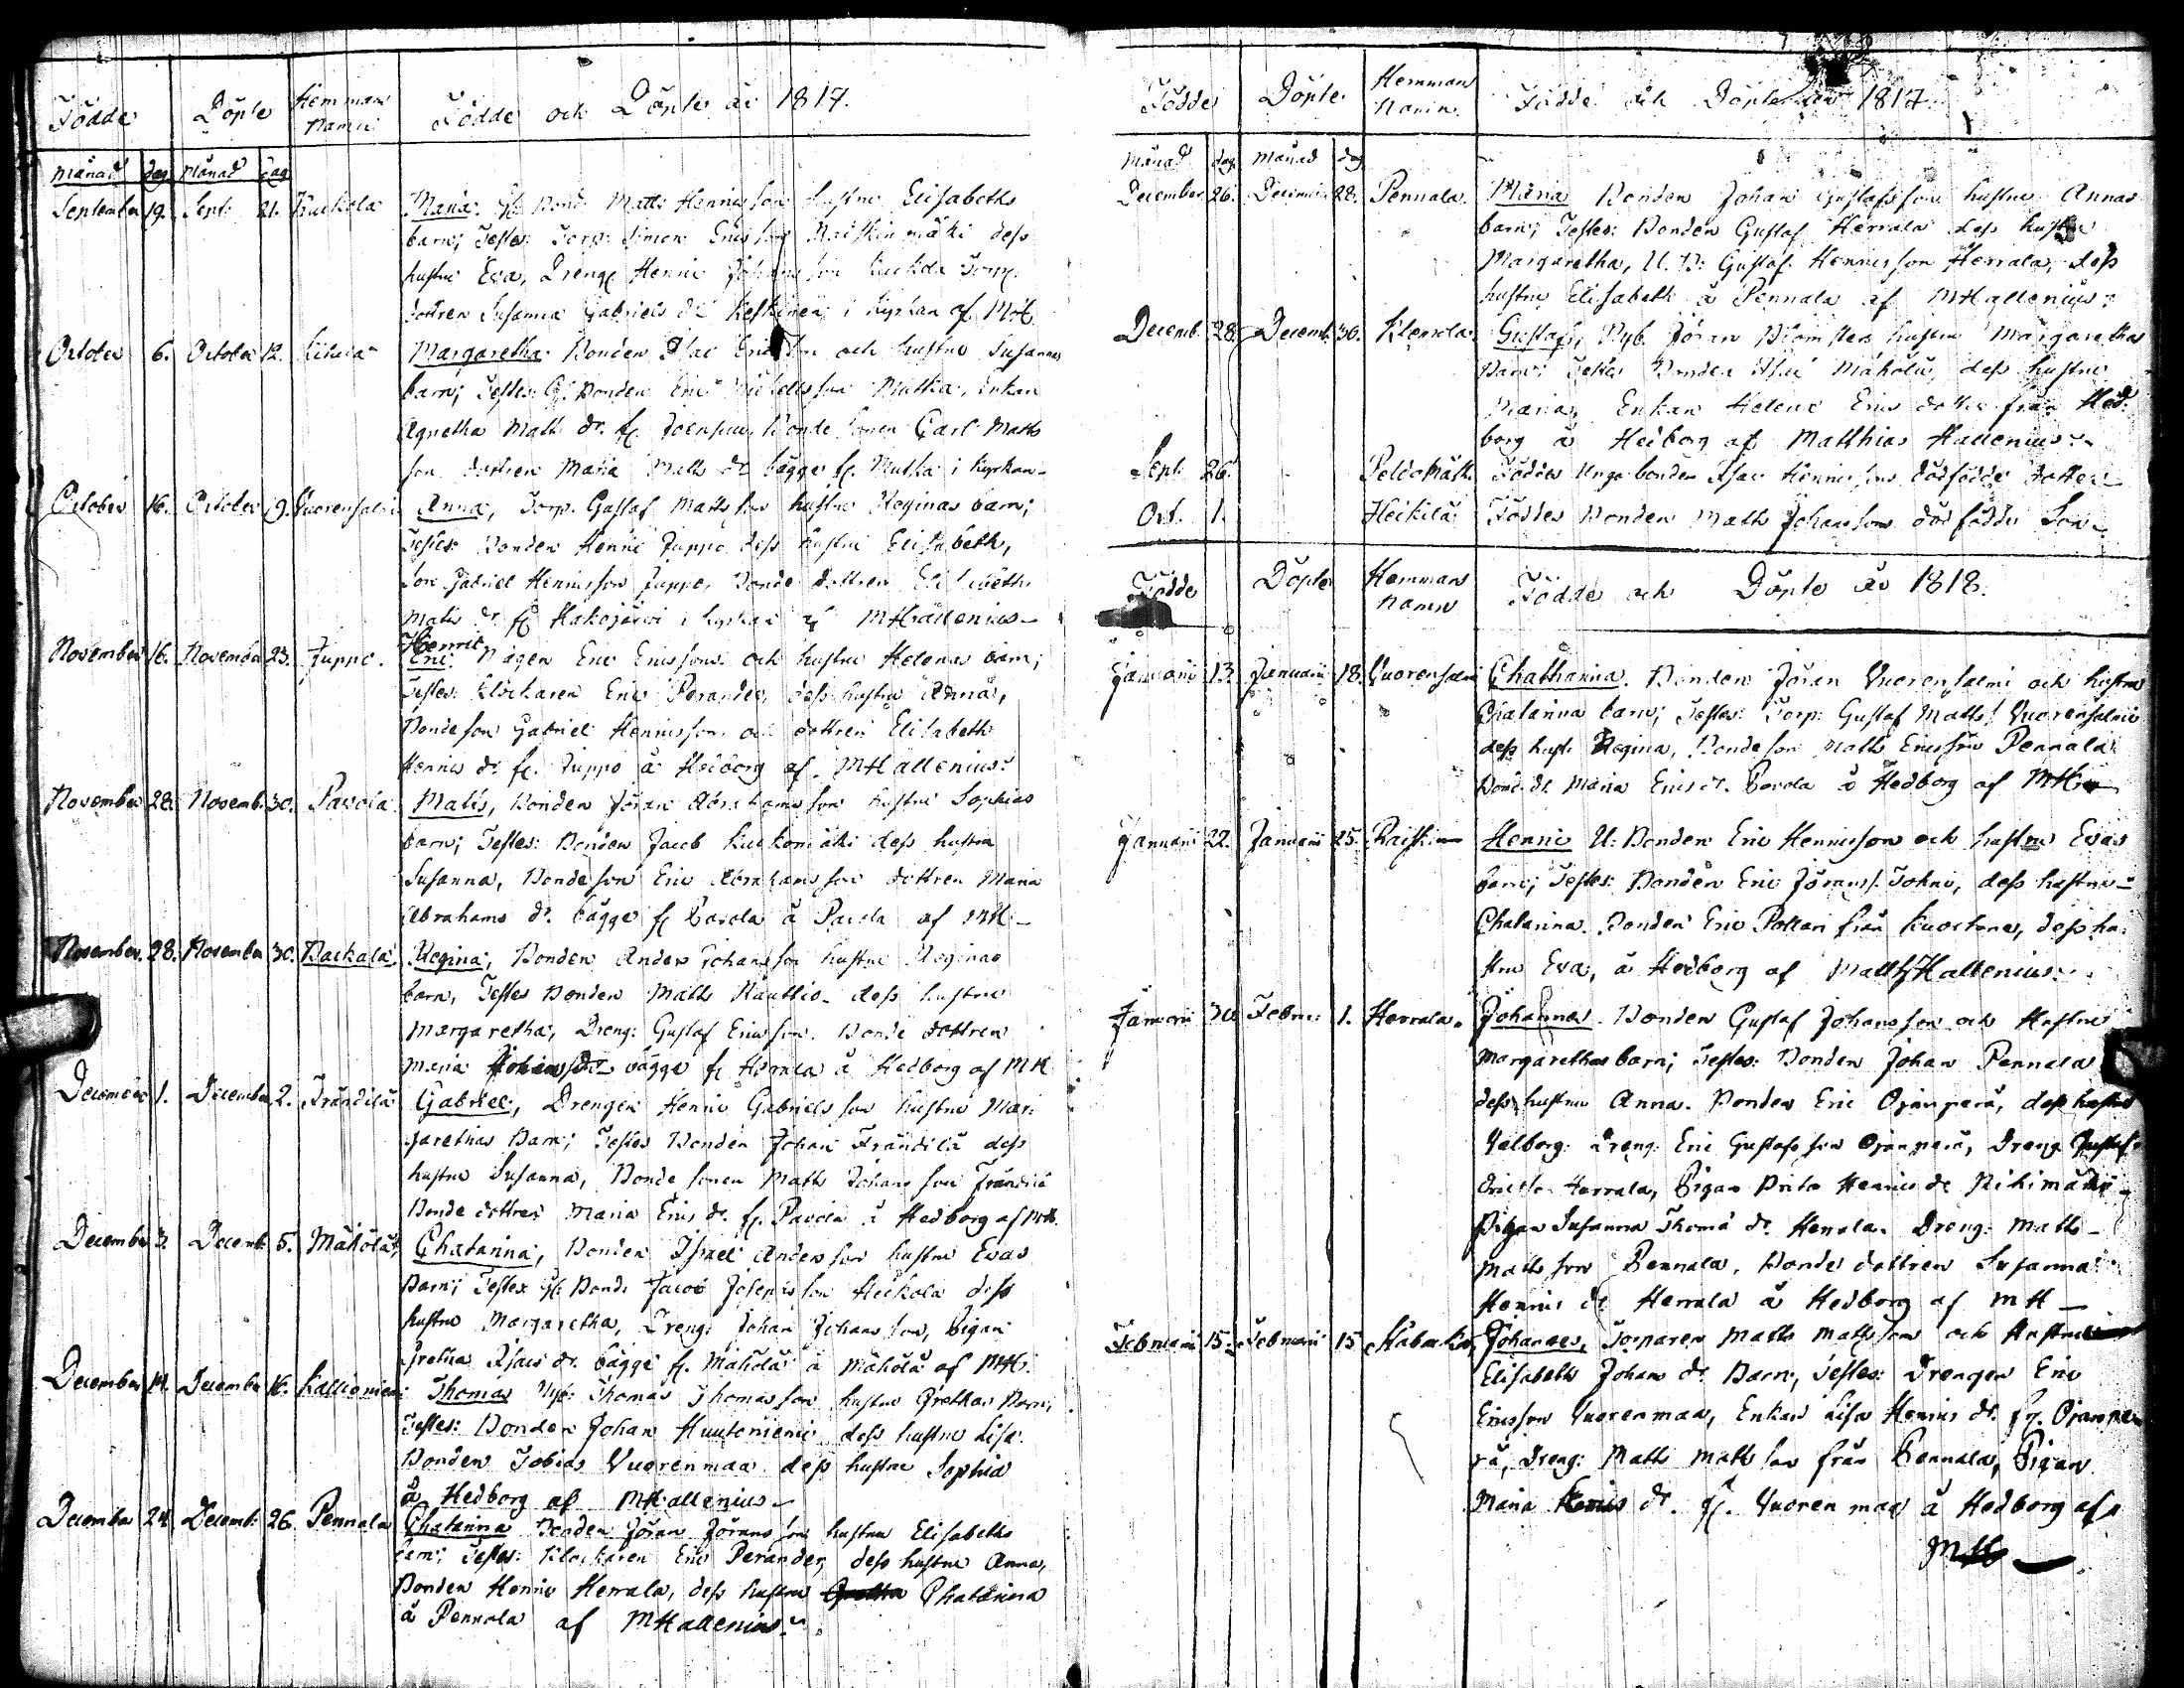 Födde Döpte Hemmans Namn Födde och Döpte år 1817.
månad dag månad dag
September 19. Sept. 21. Kuckola Maria. Bond. Matts Henricsson hustru Elisabeths
barn; Testes: Torp. Simon Ericsson Raiskinmäki dess
hustru Eva, Dreng Henric Johansson Kuckola Torp.
dottren Susanna Gabriels dr Keskinen i kyrkan af MH
October 6. October 12. Margaretha. Bonden Isac Ericsson och hustru Susannas
barn; Testes: Bonden Eric Mutka, Enkan
Agnetha Matts dr. fr. Bonde sonen Carl Matts
son dottren Maria Matts dr bägge fr. Mutka i kyrkan
October 16. October 19. Vuorensalmi Anna, Torp. Gustaf Mattsson hustru Reginas barn;
Testes: Bonden Henric Juppo dess hustru Elisabeth,
Son Gabriel Henricsson Juppo, Bonde dottren Elisabeth
Matts dr fr Hakojärvi i kyrkan af MHallenius
November 16. November 23. Juppo. Henric
Eric. Eric Ericssons och hustru Helenas barn;
Testes: Klockaren Eric Perander, dess hustru Anna,
Bondeson Gabriel Henricsson och dottren Elisabeth
Henrics dr. fr. Juppo å Hedborg af MHallenius
November 28. Novemb. 30. Pavola Matts, Bonden Jöran Abrahamsson hustru Sophias
barn; Testes: Bonden Jacob Kuckomäki dess hustru
Susanna, Bondeson Eric Abrahamsson dottren Maria
Abrahams dr. bägge fr Pavola å Pavola af MH
November 28. November 30. Backala Regina, Bonden Anders Johansson hustru Reginas
barn, Testes Bonden Matts Rauttio dess hustru
Margaretha, Dreng: Gustaf Ericsson. Bonde dottren
Maria Johans dr bägge fr Herrala å Hedborg af MH
December 1. December 2. Frändilä Gabriel, Drengen Henric Gabrielsson hustru Mar-
garethas Barn; Testes Bonden Johan Frändilä dess
hustru Susanna, Bonde sonen Matts Johansson Frändilä
Bonde dottren Maria Erics dr. fr. Pavola å Hedborg af MH.
December 3. Decemb. 5. Mäkölä Chatarina, Bonden Israel Andersson hustru Evas
Barn; Testes Bond. Jacob Josephsson Heikola dess
hustru Margaretha, Dreng: Johan Johansson, Pigan
Gretha Isacs dr. bägge fr. Mäkölä å Mäkölä af MH.
December 14. December 16. Kallioniemi Thomas Nyb: Thomas Thomasson hustru Grethas Barn;
Testes: Bonden Johan Huutoniemi dess hustru Lisa.
Bonden Tobias Vuorenmaa dess hustru Sophia
å Hedborg af MHallenius
December 24. Decemb: 26. Pennala Chatarina Bonden Jöran Jöransson hustru Elisabeths
barn; Testes: Klockaren Eric Perander, dess hustru Anna,
Bonden Henric Herrala, dess hustru Gretha Chatarina
å Pennala af MHallenius
Födde Döpte Hemmans Namn Födde och Döpte år 1817
månad dag månad dag
December 26. Decemb: 28. Pennala. Maria Bonden Johan Gustafsson hustru Annas
barn; Testes: Bonden Gustaf Herrala dess hustru
Margaretha, U. B: Gustaf Henricsson Herrala, dess
hustru Elisabeth å Pennala af MHallenius
Decemb. 28. Decemb. 30. Klemola Gustaf, Nyb. Jöran Blomster hustru Margarethas
Barn; Testes Bonden Isac Mäkölä, dess hustru
Maria, Enkan Helena Erics dotter från Hed-
borg å Hedborg af Matthias Hallenius
Sept 26. Peldomäki Föddes Unge bonden Isac Henricsons dödfödde dotter
Oct. 1. Heikilä Föddes Bonden Matts Johanssons dödfödde Son
Födde Döpte Hemmans Namn Födde och Döpte år 1818.
Januarii 13. Januarii 18. Vuorensalmi Chatharina. Bonden Jöran Vuorensalmi och hustru
Chatarina barn; Testes: Torp: Gustaf Matts. Vuorensalmi
dess hust. Regina, Bondeson Matts Ericsson Pennala
Bond. dr Maria Erics dr. Pavola å Hedborg af MH
Januarii 22. Januarii 25. Raiskin Henric U: Bonden Eric Henricsson och hustru Evas
barn; Testes: Bonden Eric Jörans. Tohni, dess hustru
Chatarina. Bonden Eric Pottari från Kuortane, dess hu-
stru Eva, å Hedborg af Matth Hallenius
Januarii 30 Febru: 1. Herrala. Johanna. Bonden Gustaf Johansson och Hustru
Margarethas barn; Testes: Bonden Johan Pennala
dess hustru Anna. Bonden Eric Ojanperä, dess hustru
Valborg: Dreng: Eric Gustafsson Ojanperä, Dreng Gustaf
Ericsson Herrala, Pigan Brita Henrics dr Rihimäki
Pigan Susanna Thoma dr. Herrala. Dreng: Matts
Mattsson Pennala, Bonde dottren Susanna
Henrics dr Herrala å Hedborg af MH
Februarii 15. Februarii 15 Johannes, Torparen Matts Mattsson och Hustru
Elisabeth Johans dr. Barn; Testes: Drengen Eric
Ericsson Vuorenmaa, Enkan Lisa Henrics dr. fr. Ojanpe-
rä, Dreng: Matts Mattsson från Pennala, Pigan
Maria Henrics dr. fr. Vuorenmaa å Hedborg af
MH